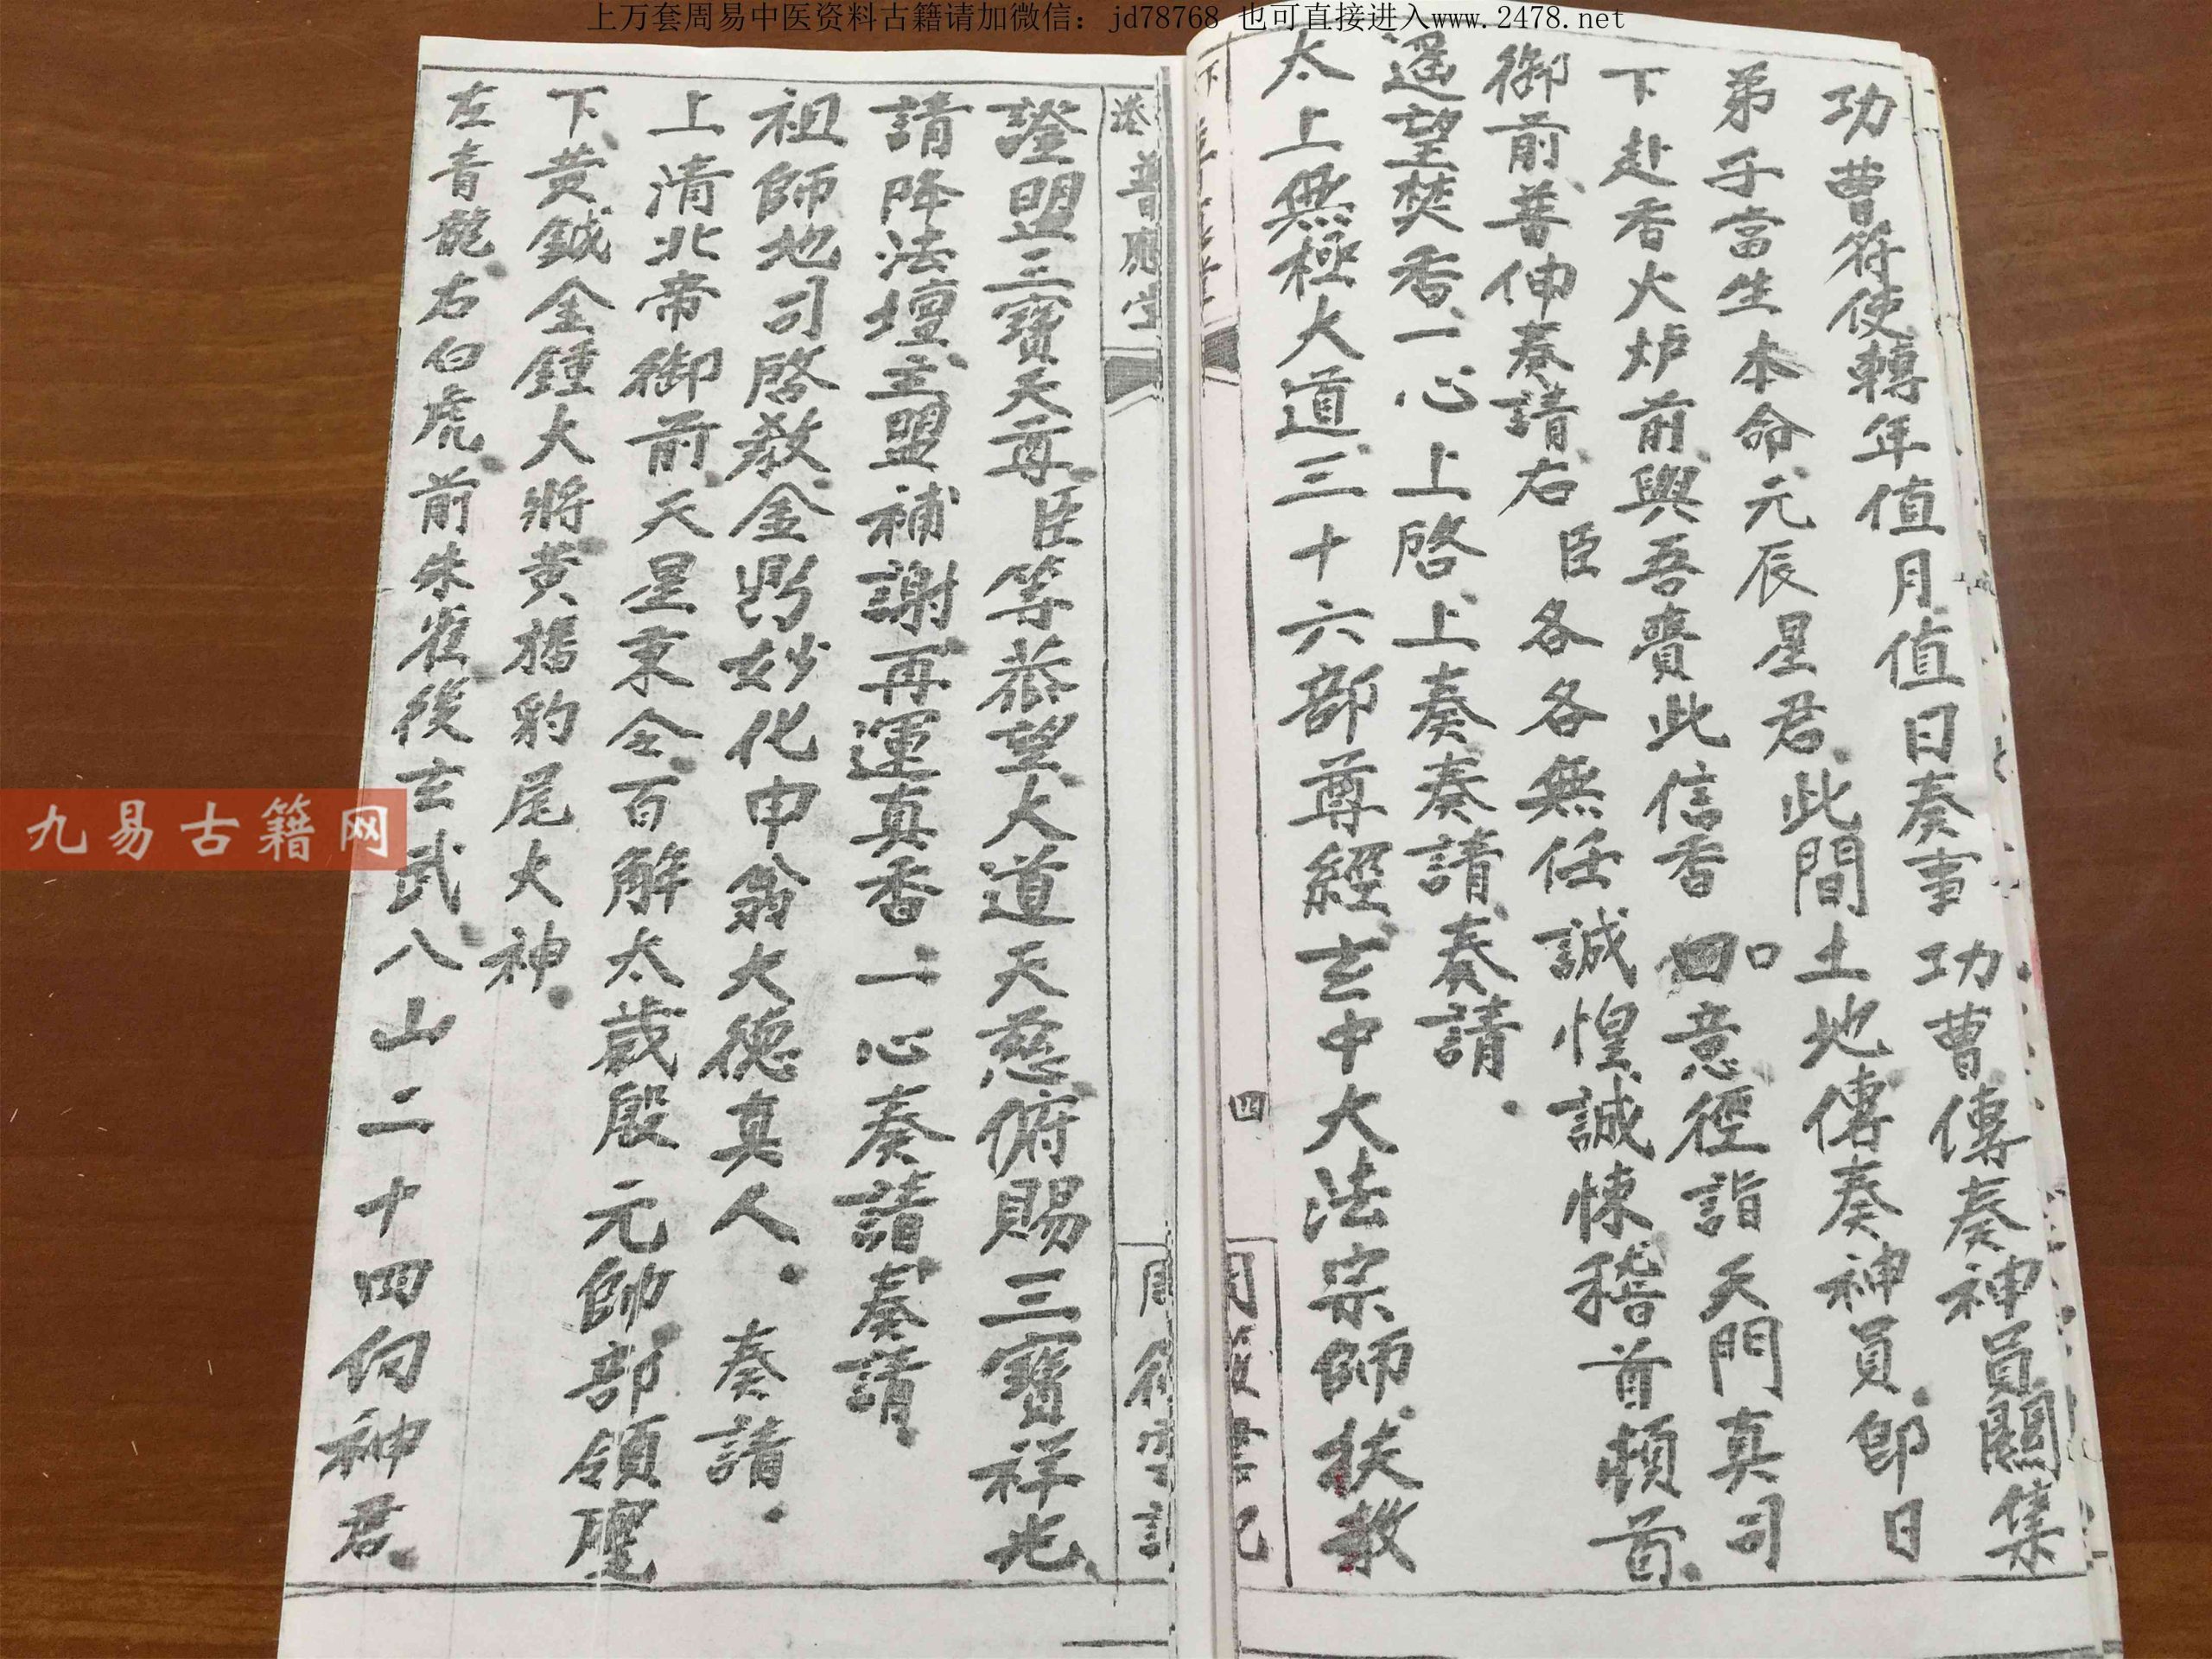 上万套周易中医资料古籍请加微信：jd78768 也可直接进入www.2478.net
功曹符使轉年值月值日奏事功曹傳奏神員關集
弟子當生本命元辰星君此間土地傳奏神員即日
下赴香火炉前與吾賫此信香口意徑詣天門真司
御前普伸奏請右臣各各無任誠惶誠悚稽首頓首
遥望焚香一心上啓上奏奏請奏請
太上無極大道三十六部尊經玄中大法宗師扶教
四
普應堂
證盟三寶天尊臣等恭望大道天慈俯賜三寶祥光
請降法壇主盟補謝再運真香一心奏請奏請
祖師地司啓教金鼎妙化申翁大德真人奏請
上清北帝御前天星秉令百解太歲殷元帥部領聖
下黄鉞金鍾大將黄旛豹尾大神
左青龍右白虎前朱雀後玄武八山二十四向神君
九易古籍网